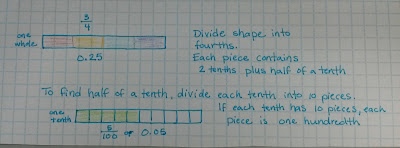 3/4
Divide shape into
one
whole
fourths.
0.25
Each piece contains
2 tenths plus half of a tenth
To find half of a tenth, divide each tenth into 10 pieces.
one
tenth
If each tenth has 10 pieces, each
piece is one hundredth
5/100 or 0.05